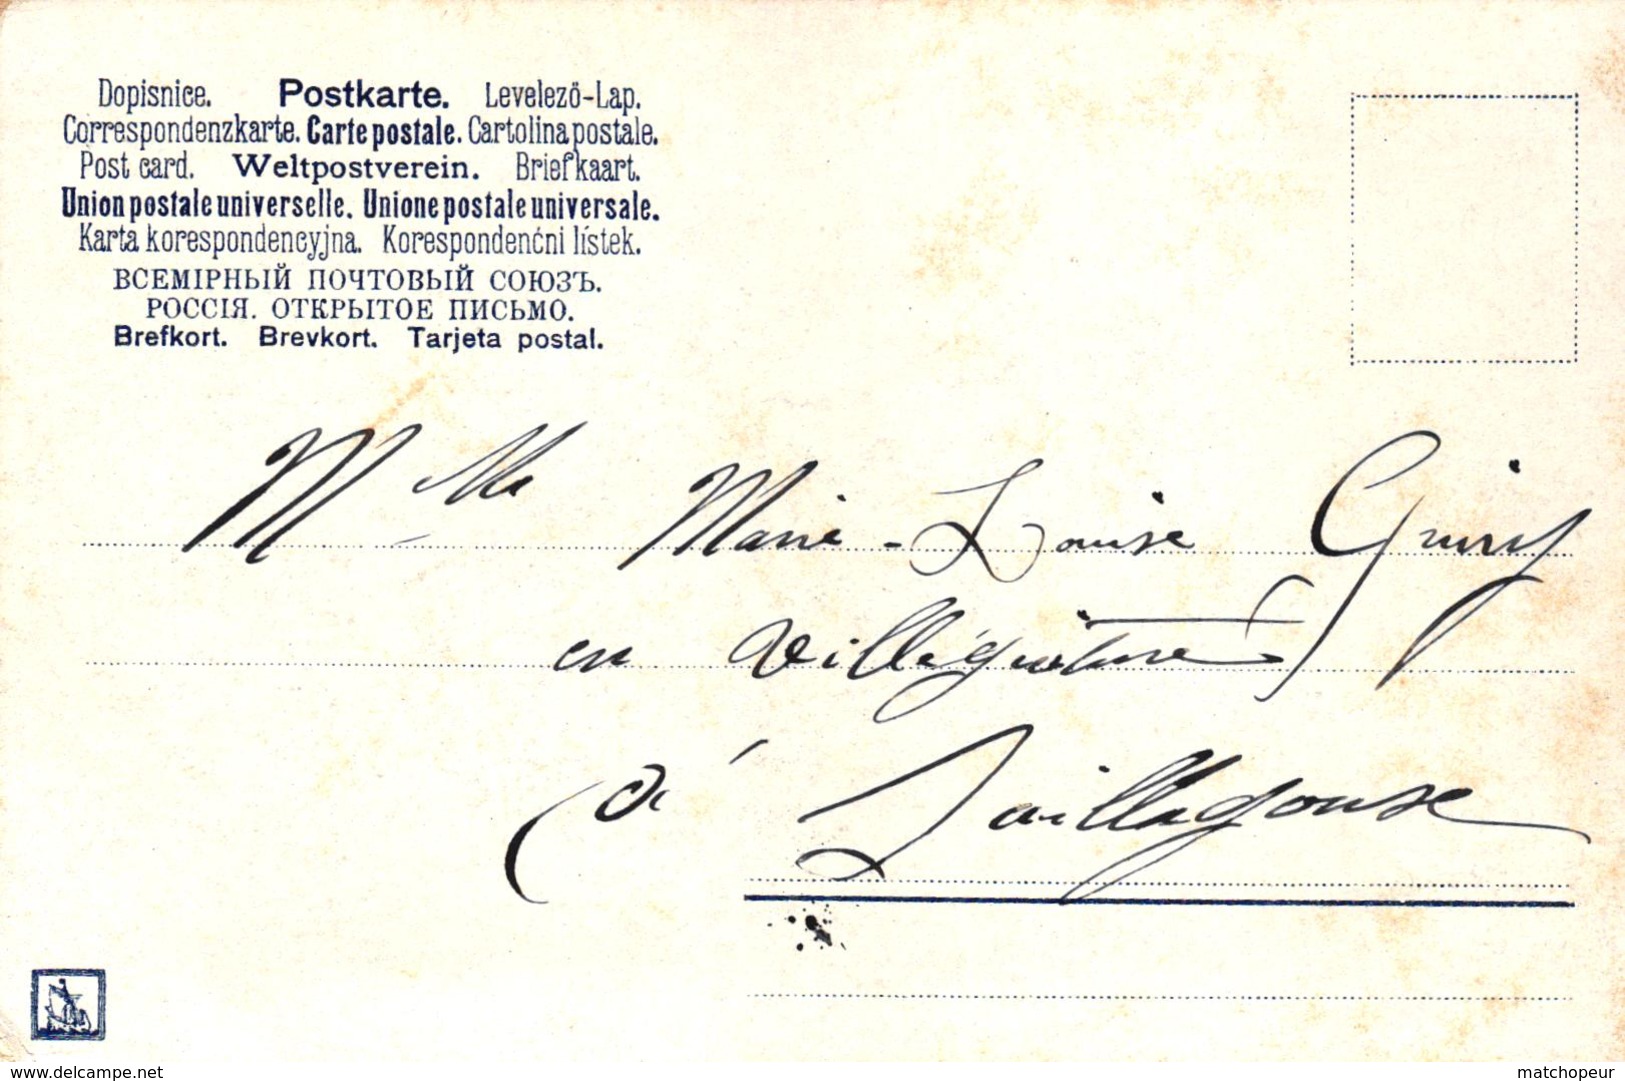 Dopisnice. Postkarte. Levelező-Lap.
Correspondenzkarte. Carte postale. Cartolina postale.
Post card. Weltpostverein. Briefkaart.
Union postale universelle. Unione postale universale.
Karta korespondencyjna. Korespondenćni lístek.
ВСЕМІРНЫЙ ПОЧТОВЫЙ СОЮЗЪ.
РОССІЯ. ОТКРЫТОЕ ПИСЬМО.
Brefkort. Brevkort. Tarjeta postal.
Mlle Marie-Louise Guiry
en villégiature
à Saillagouse
www.delcampe.net
matchopeur